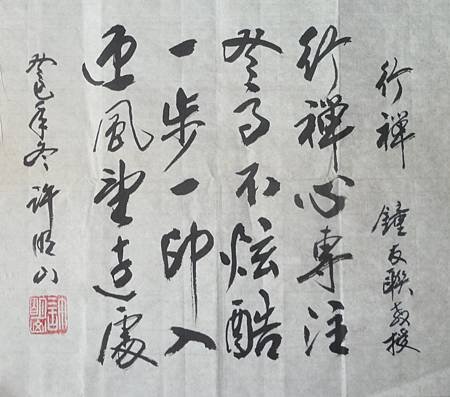 行禪 鐘友聯教授
行禪心專注
不炫酷
一步一印入
迎風望遠處
癸巳年冬 許明山